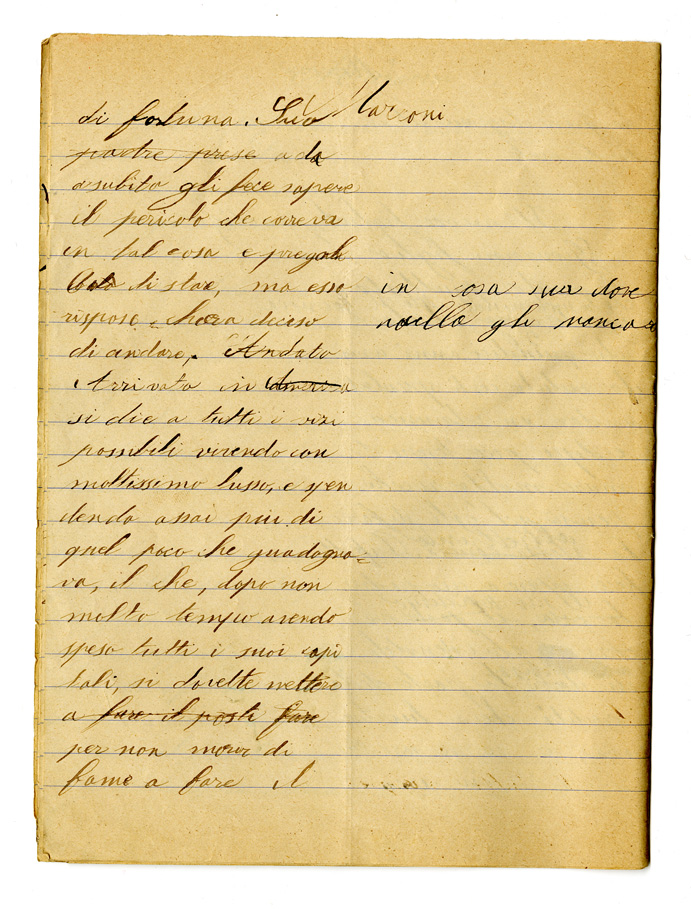 di fortuna. Suo Marconi
padre prese a da
a subito gli fece sapere
il pericolo che correva
in tal cosa e pregah
di star, ma esso
in casa sua dove
rispose chera deciso
nulla gli manca
di andare, Andato
Arrivato in
si die a tutti i vizi
possibili vivendo con
moltissimo lusso, e spen
dendo assai piu di
quel poco che guadagna=
va, il che, dopo non
molto tempo avendo
speso tutti i suoi capi
tali, si dovette mettere
a fare il posti fare
per non morir di
fame a fare il